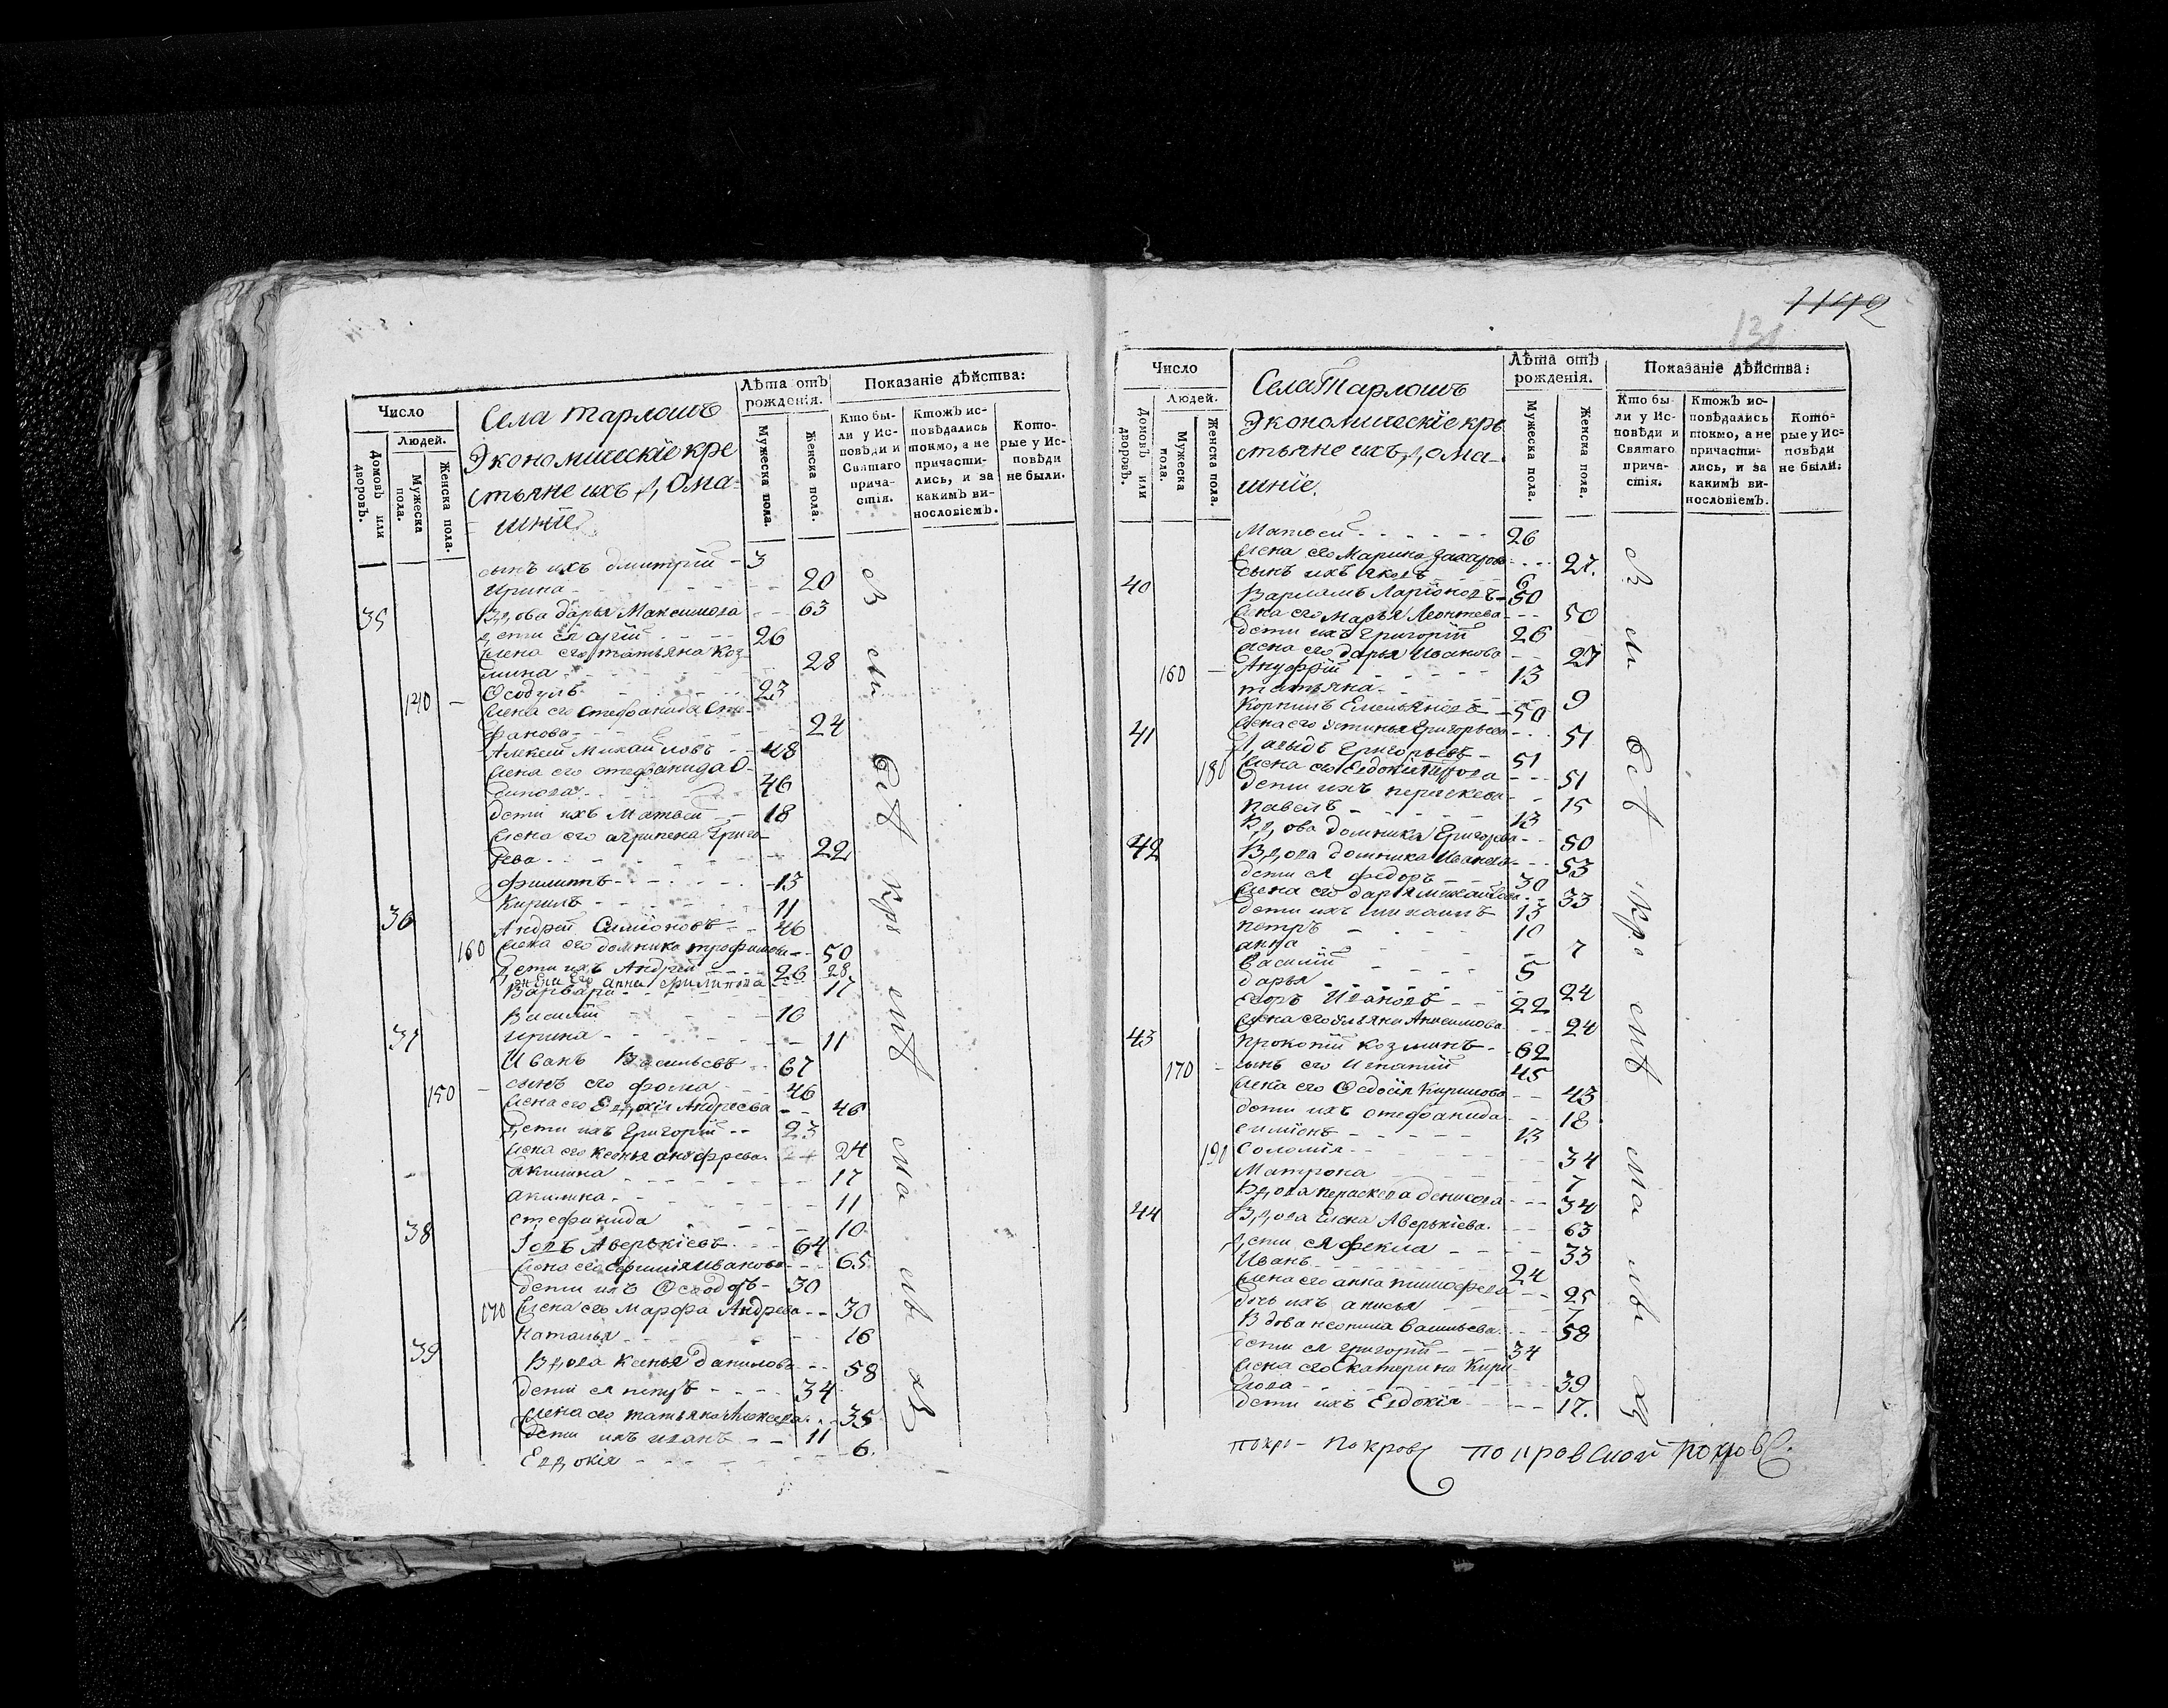 Число
Людей.
Домовъ или дворовъ.
Мужеска пола.
Женска пола.
Села Тарлошъ
Экономическіе кре
стьяне ихъ дома-
шніе
Лѣта отъ рожденія.
Мужеска пола.
Женска пола.
Показаніе дѣйства:
Кто бы-
ли у Ис-
повѣди и
Святаго
прича-
стія.
Ктожъ ис-
повѣдались
токмо, а не
причасти-
лись, и за
какимъ ви-
нословіемъ.
Кото-
рые у Ис-
повѣди
не были.
сынъ ихъ дмитрій - 3
Ирина 20
35 Вдова дарья Максимова 63
дети ея 26
жена его татьяна Коз-
мина 28
Ѳедулъ 23
140 жена его стефанида Сте-
фанова 24
Алексей Михайловъ 48
жена его стефанида О-
сипова 46
дети ихъ Матвей 18
жена его агрипена Григо-
рева 22
филиппъ 13
Кирилъ 11
36 Андрей Симіоновъ 46
160 жена его домника трофимова 50
дети ихъ Андрей 26
жена его анна филипова 28
Варвара 17
Василій 16
ирина 11
37 Иванъ Васильевъ 67
сынъ его фома 46
150 жена его Евдокія Андреева 46
дети ихъ Григорій 23
жена его ксенья 24
акилина 17
акилина 11
стефанида 10
38 Іовъ Аверкіевъ 64
жена его Иванова 65
дети ихъ Ѳеодоръ 30
170 жена его Марфа Андреева 30
Наталья 16
39 Вдова ксенья данилова 58
дети ея петръ 34
жена его татьяна Алексеева 35
дети ихъ иванъ 11
Евдокія 6.
в
си
бѣ
кр
снѣ
ма
лы
хъ
1142
131
Число
Людей.
Домовъ или дворовъ.
Мужеска пола.
Женска пола.
Села Тарлошъ
Экономическіе кре
стьяне ихъ дома-
шніе.
Лѣта отъ рожденія.
Мужеска пола.
Женска пола.
Показаніе дѣйства:
Кто бы-
ли у Ис-
повѣди и
Святаго
прича-
стія.
Ктожъ ис-
повѣдались
токмо, а не
причасти-
лись, и за
какимъ ви-
нословіемъ.
Кото-
рые у Ис-
повѣди
не были.
Матвей 26
жена его Марина Захарова 27.
сынъ ихъ яковъ 6
40 Варламъ Ларіоновъ 50
жена его Марья Леонтева 50
дети ихъ григорій 26
жена его дарья Иванова 27
160 Ануфрій 13
татьяна 9
Корнилъ Емельяновъ 50
жена его устинья Григорьева 51
41 давыдъ Григорьевъ 51
180 жена его Евдокія 51
дети ихъ параскева 15
павелъ 13
Вдова домника Григорева 50
42 Вдова домника Иванова 53
дети ея федоръ 30
жена его дарья михайлова 33
дети ихъ михаилъ 13
петръ 10
анна 7
Василій 5
дарья 24
Егоръ Ивановъ 22
жена его ульяна Анисимова 24
43 прокопій козминъ 62
170 сынъ его Игнатій 45
жена его Ѳедосія Кирилова 43
дети ихъ стефанида 18
симіонъ 13
190 Соломія 34
Матрона 7
Вдова параскева денисова 34
44 Вдова Елена Аверкіева 63
дети ея фекла 33
Иванъ 24
жена его анна тимофеева 25
дочь ихъ анисья 7
Вдова неонила Васильева 58
дети ея григорій 34
жена его Екатерина Кири-
лова 39
дети ихъ Евдокія 17.
в
си
бѣ
кро
снѣ
ма
лы
хъ
покр- покров покровской покров.